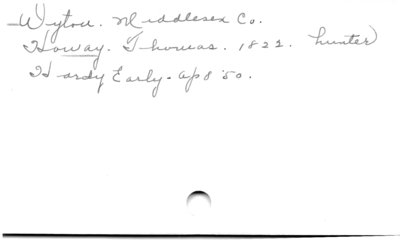 Wyton. Middlesex Co.
Howay. Thomas. 1822. hunter
Hardy Early - Ap 8 '50.